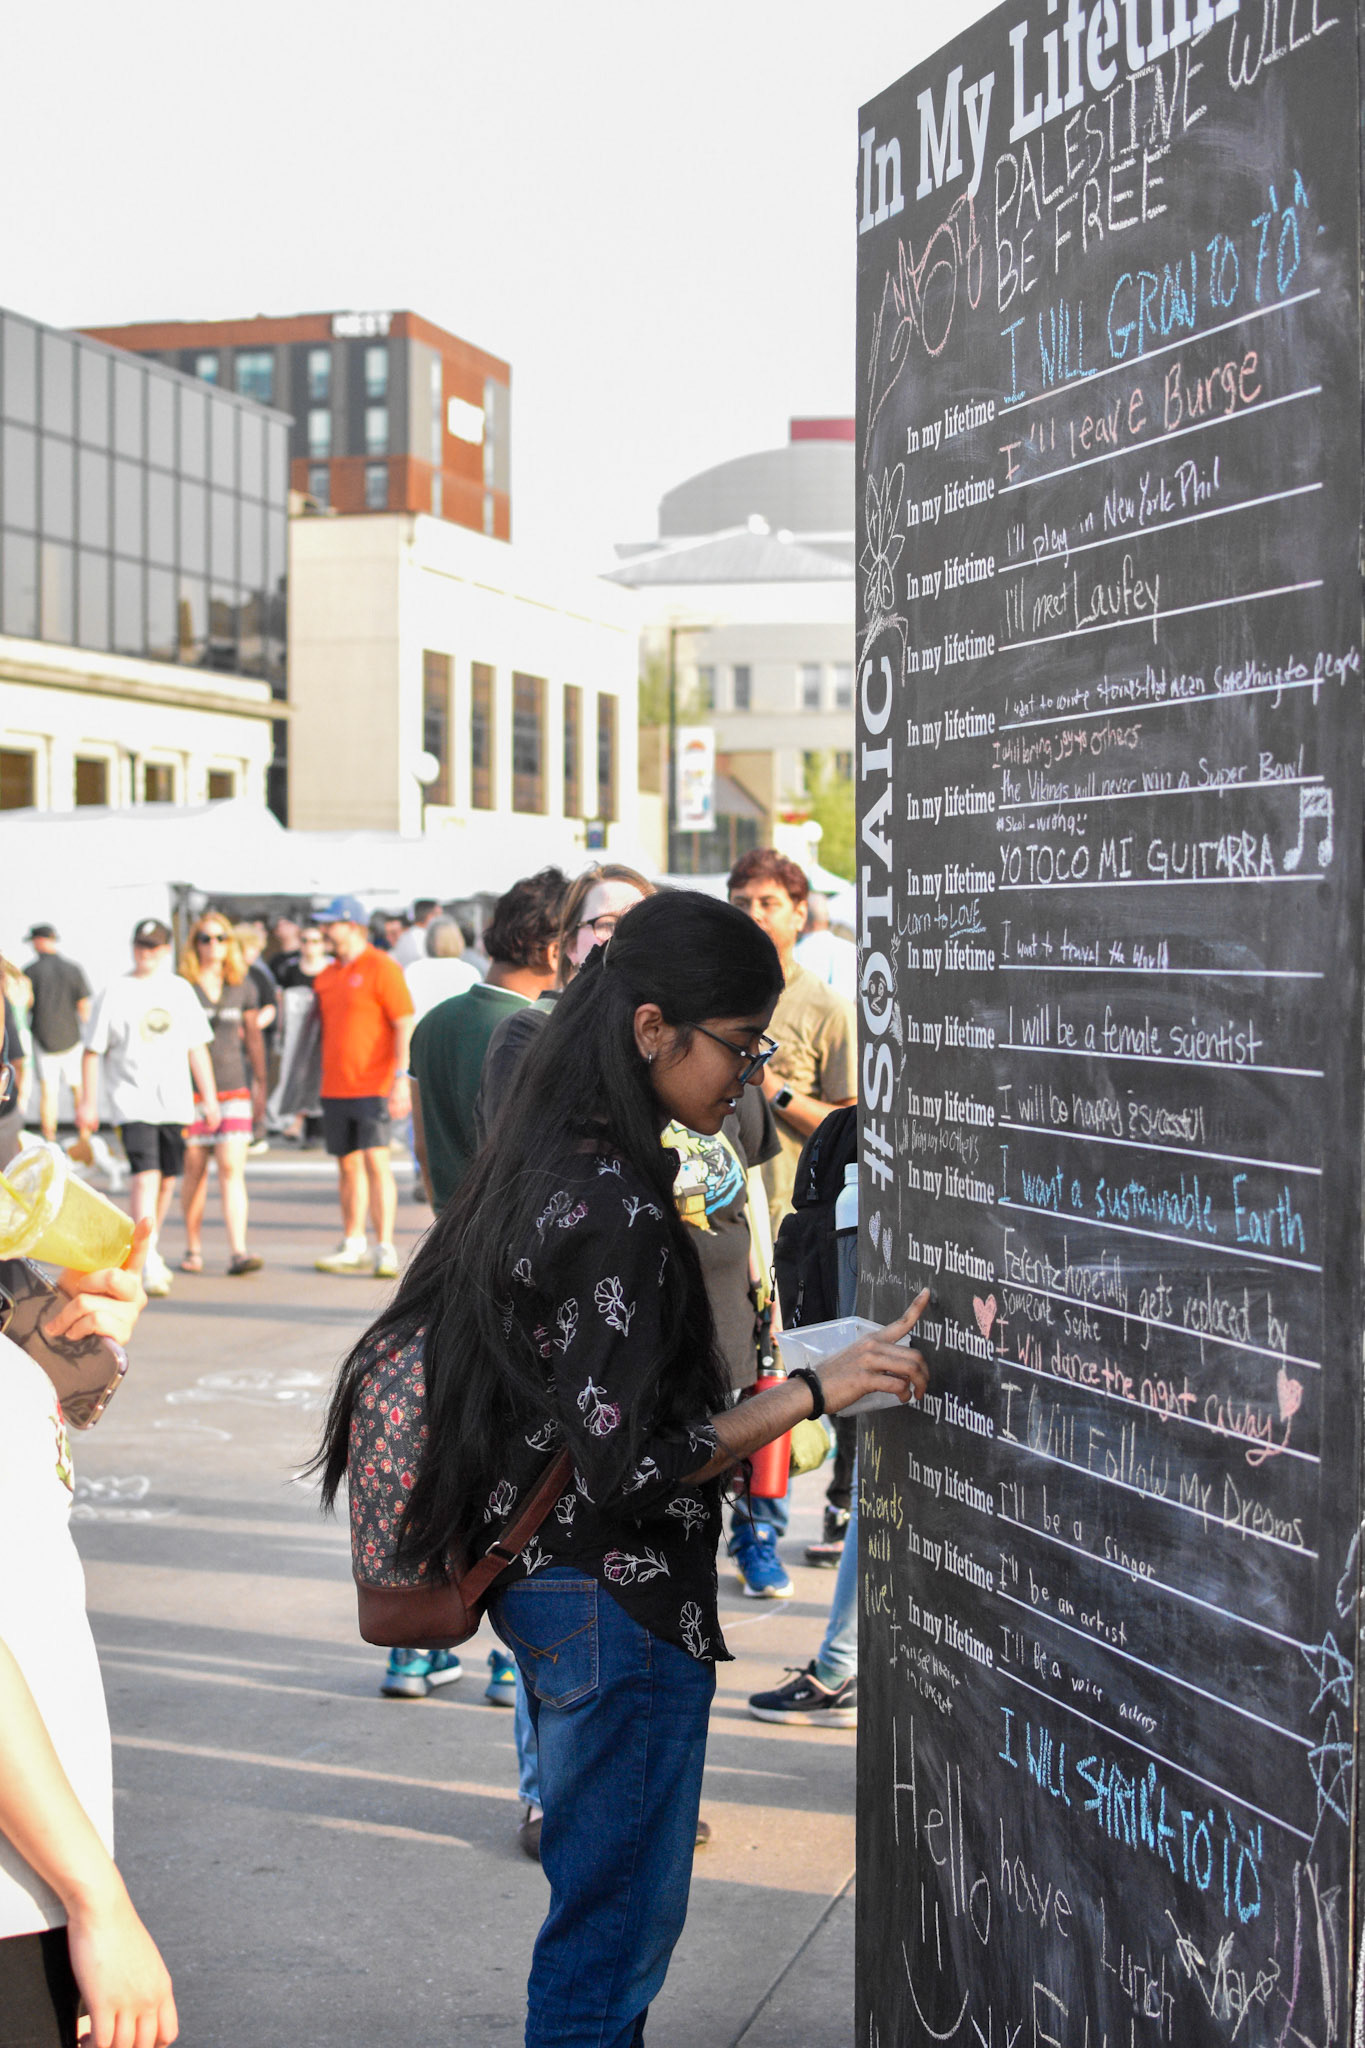 In My Lifetim
PALESTINE WILL
BE FREE
In my lifetime I WILL GROW TO 7'0"
In my lifetime I'll leave Burge
In my lifetime I'll play in New York Phil
In my lifetime I'll meet Laufey
In my lifetime I want to write stories that mean something to people
I will bring joy to others
In my lifetime the Vikings will never win a Super Bowl
#Skol - wrong
In my lifetime YO TOCO MI GUITARRA
Learn to LOVE
In my lifetime I want to travel the World
In my lifetime I will be a female scientist
In my lifetime I will be happy & sucessful
I'll bring joy to others
In my lifetime I want a sustainable Earth
In my lifetime Ferentz hopefully gets replaced by
someone sane
In my lifetime I will dance the night away
In my lifetime I Will Follow My Dreams
In my lifetime I'll be a singer
In my lifetime I'll be an artist
In my lifetime I'll Be a voice actress
I WILL SHRINK TO 1'0"
#SOTAIC
My
friends
will
live!
I will see Hozier
in concert
Hello
have
Lunch
NEST